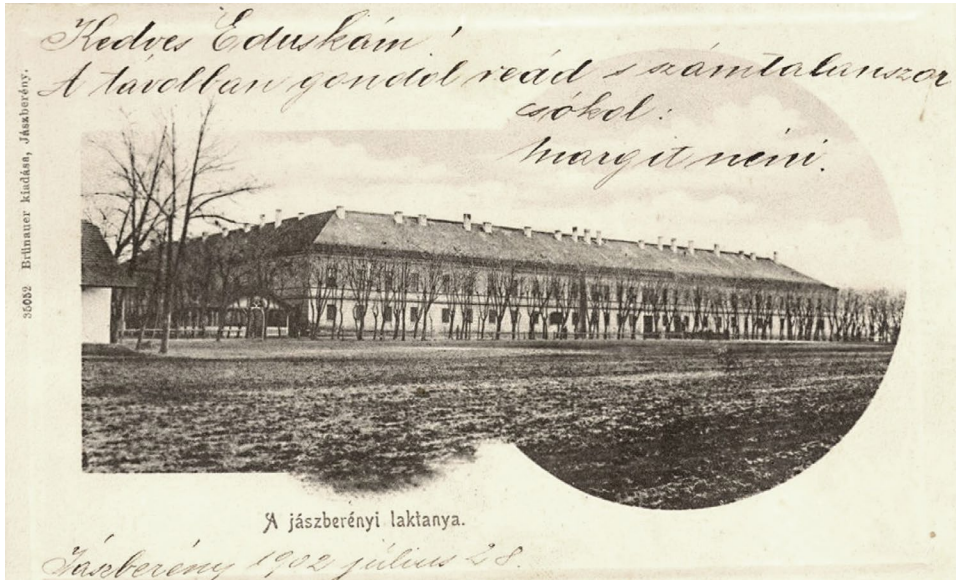 Kedves Eduskám!
A távolban gondol reád s számtalanszor
csókol:
Margit néni.
35052 Brünauer kiadása, Jászberény.
A jászberényi laktanya.
Jászberény 1902 július 28.